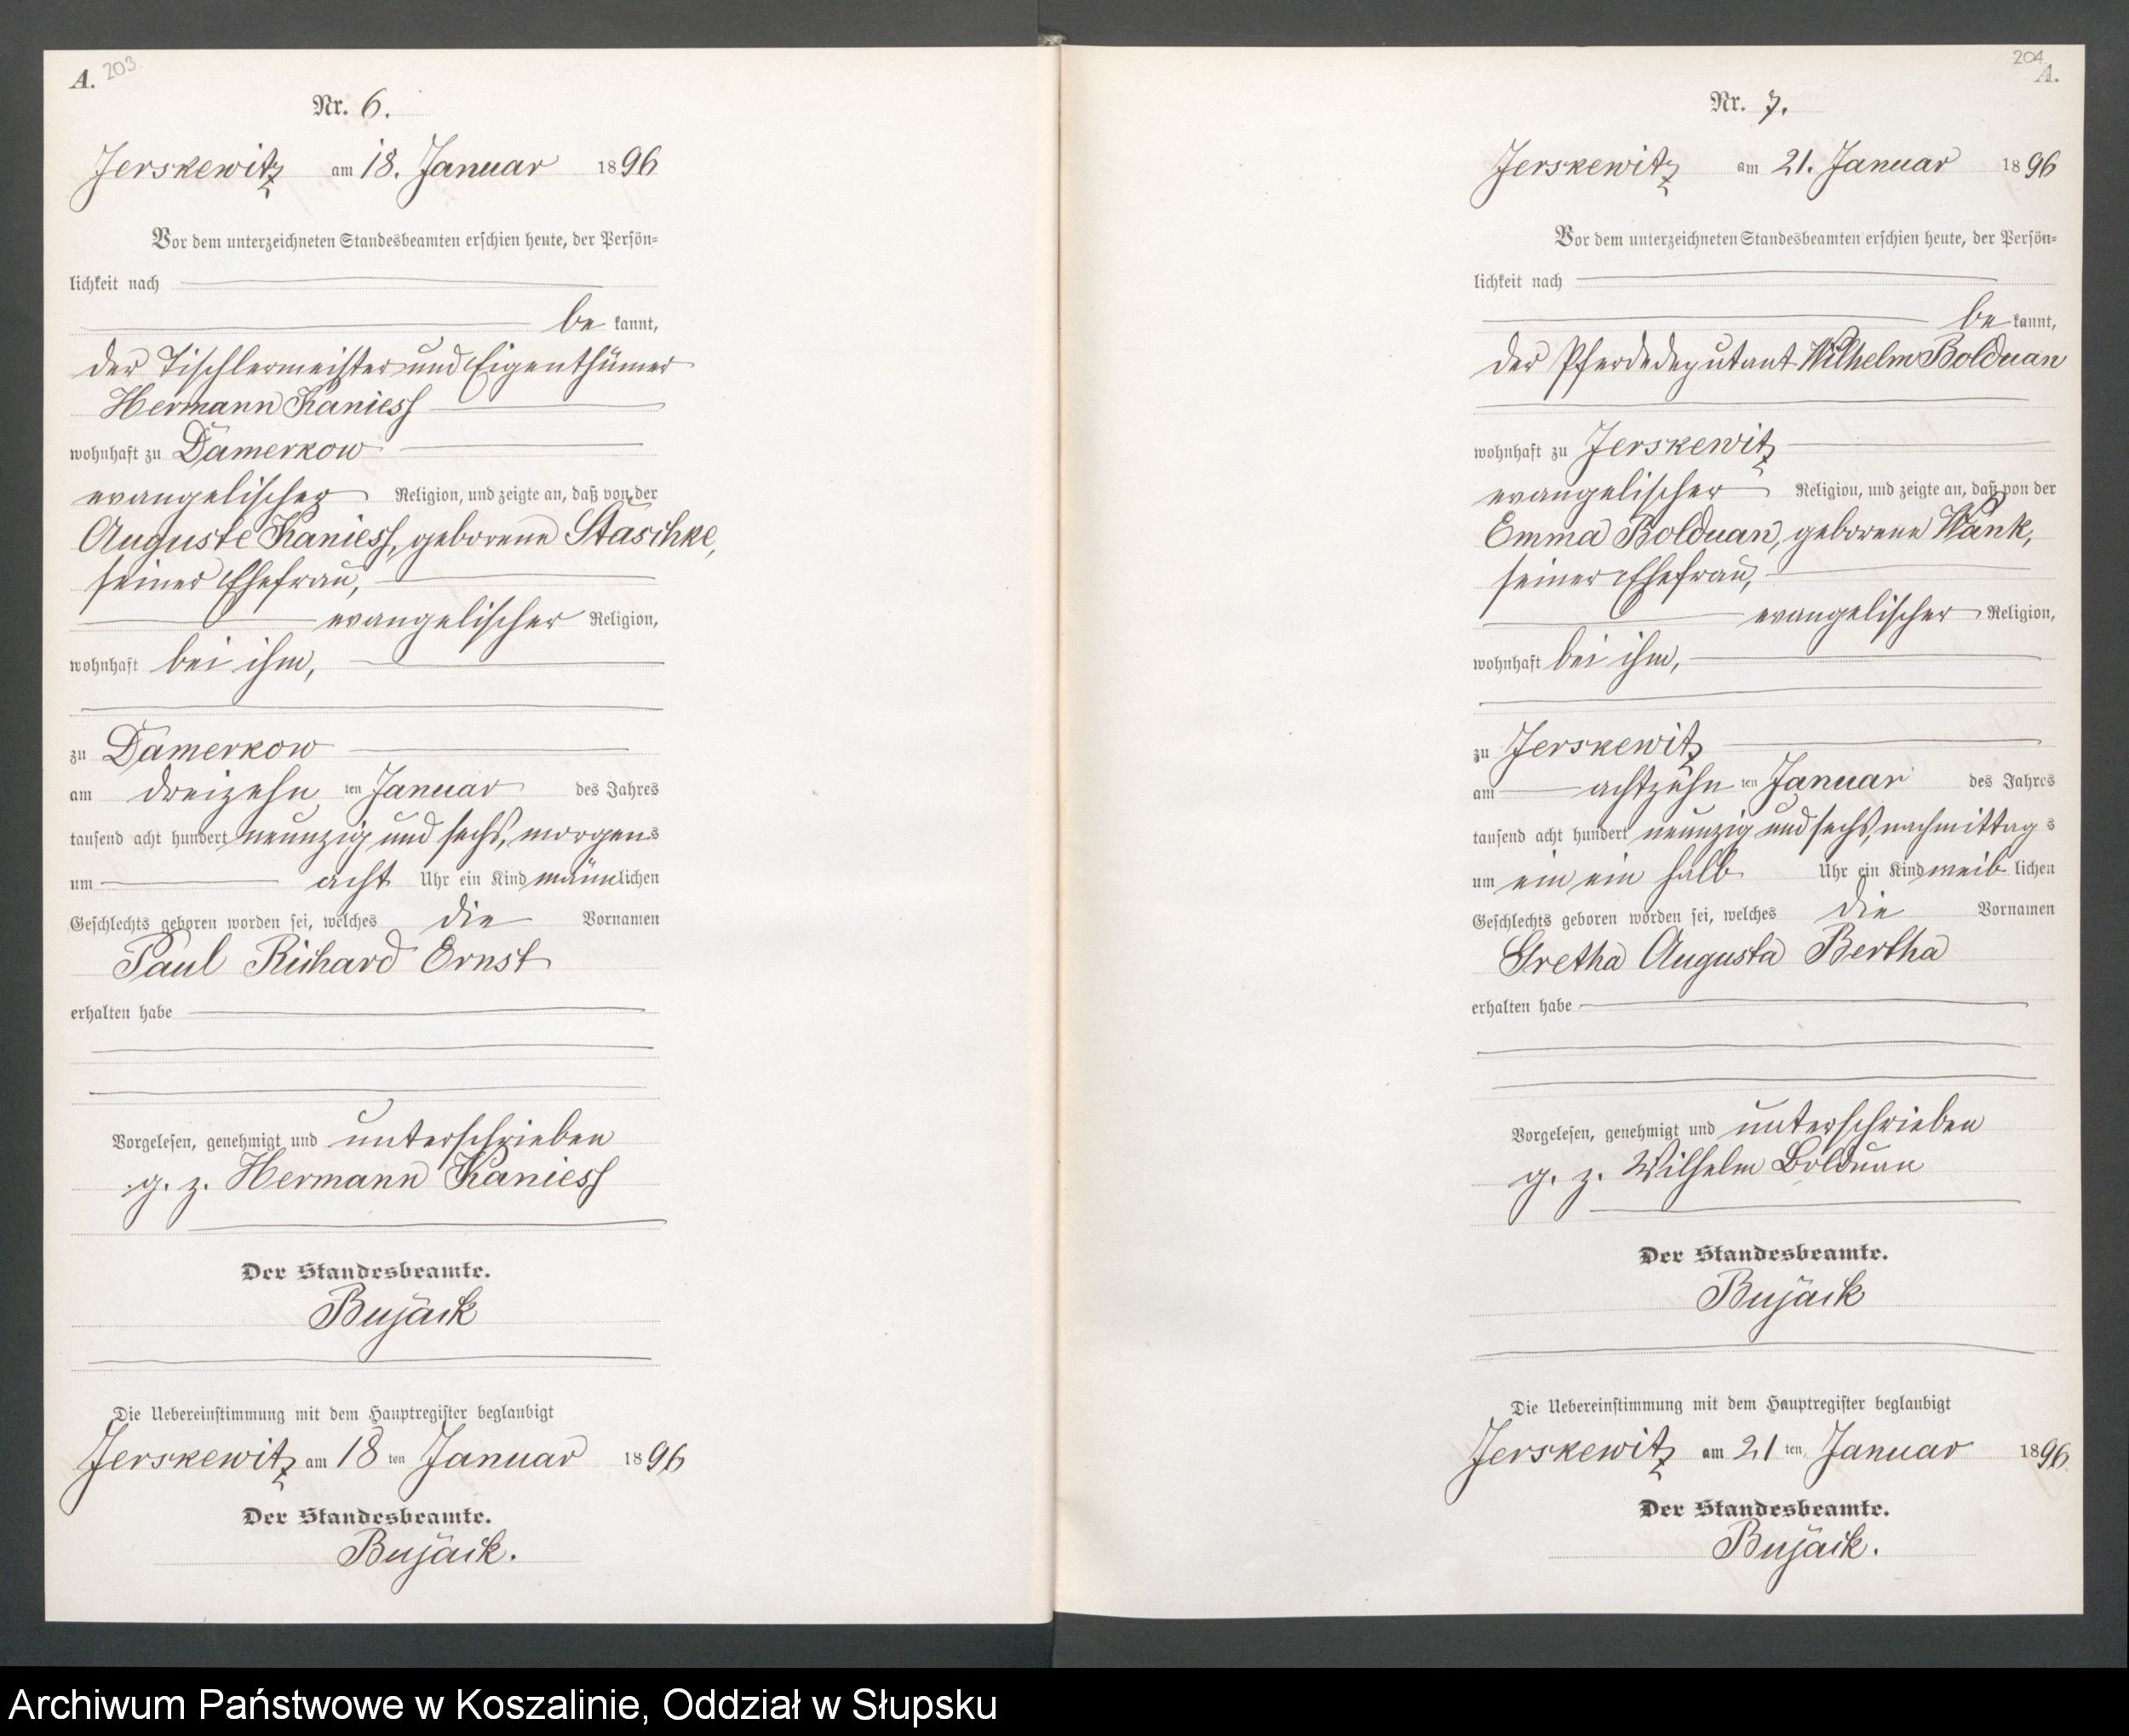 A. 203.
Nr. 6.
Jerskewitz am 18. Januar 1896
Vor dem unterzeichneten Standesbeamten erschien heute, der Persön-
lichkeit nach
be kannt,
der Tischlermeister und Eigenthümer
Hermann Kaniess
wohnhaft zu Damerkow
evangelischer Religion, und zeigte an, daß von der
Auguste Kaniess, geborene Staschke,
seiner Ehefrau,
evangelischer Religion,
wohnhaft bei ihm,
zu Damerkow
am dreizehn ten Januar des Jahres
tausend acht hundert neunzig und sechs, morgens
um acht Uhr ein Kind männlichen
Geschlechts geboren worden sei, welches die Vornamen
Paul Richard Ernst
erhalten habe
Vorgelesen, genehmigt und unterschrieben
g. z. Hermann Kaniess
Der Standesbeamte.
Bujack
Die Uebereinstimmung mit dem Hauptregister beglaubigt
Jerskewitz am 18 ten Januar 1896
Der Standesbeamte.
Bujack.
204 A.
Nr. 7.
Jerskewitz am 21. Januar 1896
Vor dem unterzeichneten Standesbeamten erschien heute, der Persön-
lichkeit nach
be kannt,
der Pferdedeputant Wilhelm Bolduan
wohnhaft zu Jerskewitz
evangelischer Religion, und zeigte an, daß von der
Emma Bolduan, geborene Wank,
seiner Ehefrau,
evangelischer Religion,
wohnhaft bei ihm,
zu Jerskewitz
am achtzehn ten Januar des Jahres
tausend acht hundert neunzig und sechs, nachmittag s
um ein ein halb Uhr ein Kind weib lichen
Geschlechts geboren worden sei, welches die Vornamen
Gretha Augusta Bertha
erhalten habe
Vorgelesen, genehmigt und unterschrieben
g. z. Wilhelm Bolduan
Der Standesbeamte.
Bujack
Die Uebereinstimmung mit dem Hauptregister beglaubigt
Jerskewitz am 21 ten Januar 1896
Der Standesbeamte.
Bujack.
Archiwum Państwowe w Koszalinie, Oddział w Słupsku